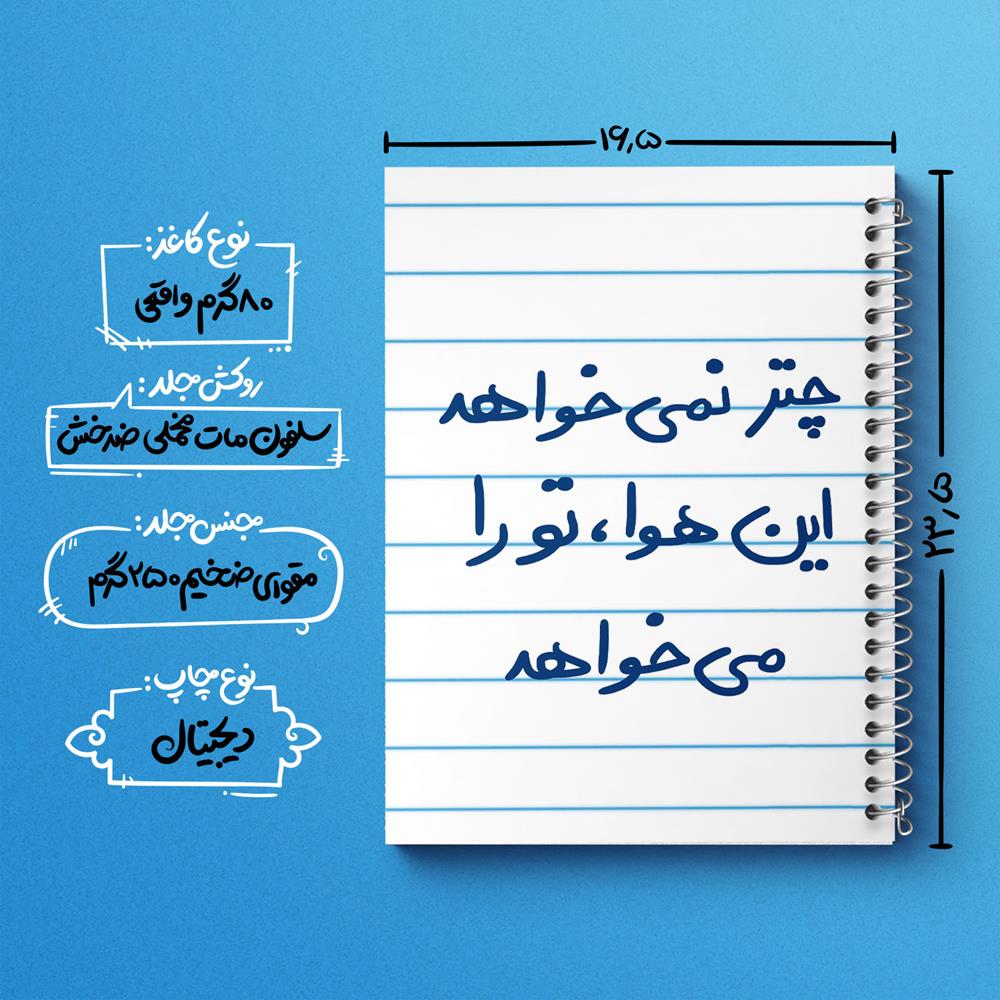 ۱۶٫۵
۲۳٫۵
چتر نمی‌خواهد
این هوا، تو را
می‌خواهد
نوع کاغذ:
۸۰ گرم واقعی
روکش جلد:
سلفون مات مخملی ضدخش
جنس جلد:
مقوای ضخیم ۲۵۰ گرم
نوع چاپ:
دیجیتال